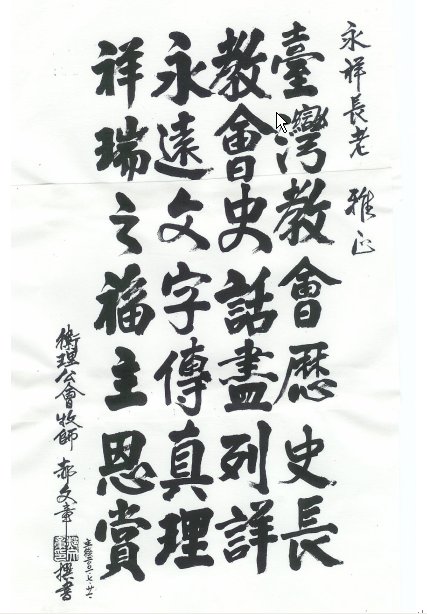 永祥長老 雅正
臺灣教會歷史長
教會史話盡列詳
永遠文字傳真理
祥瑞之福主恩賞
衛理公會牧師 郝文章 撰書